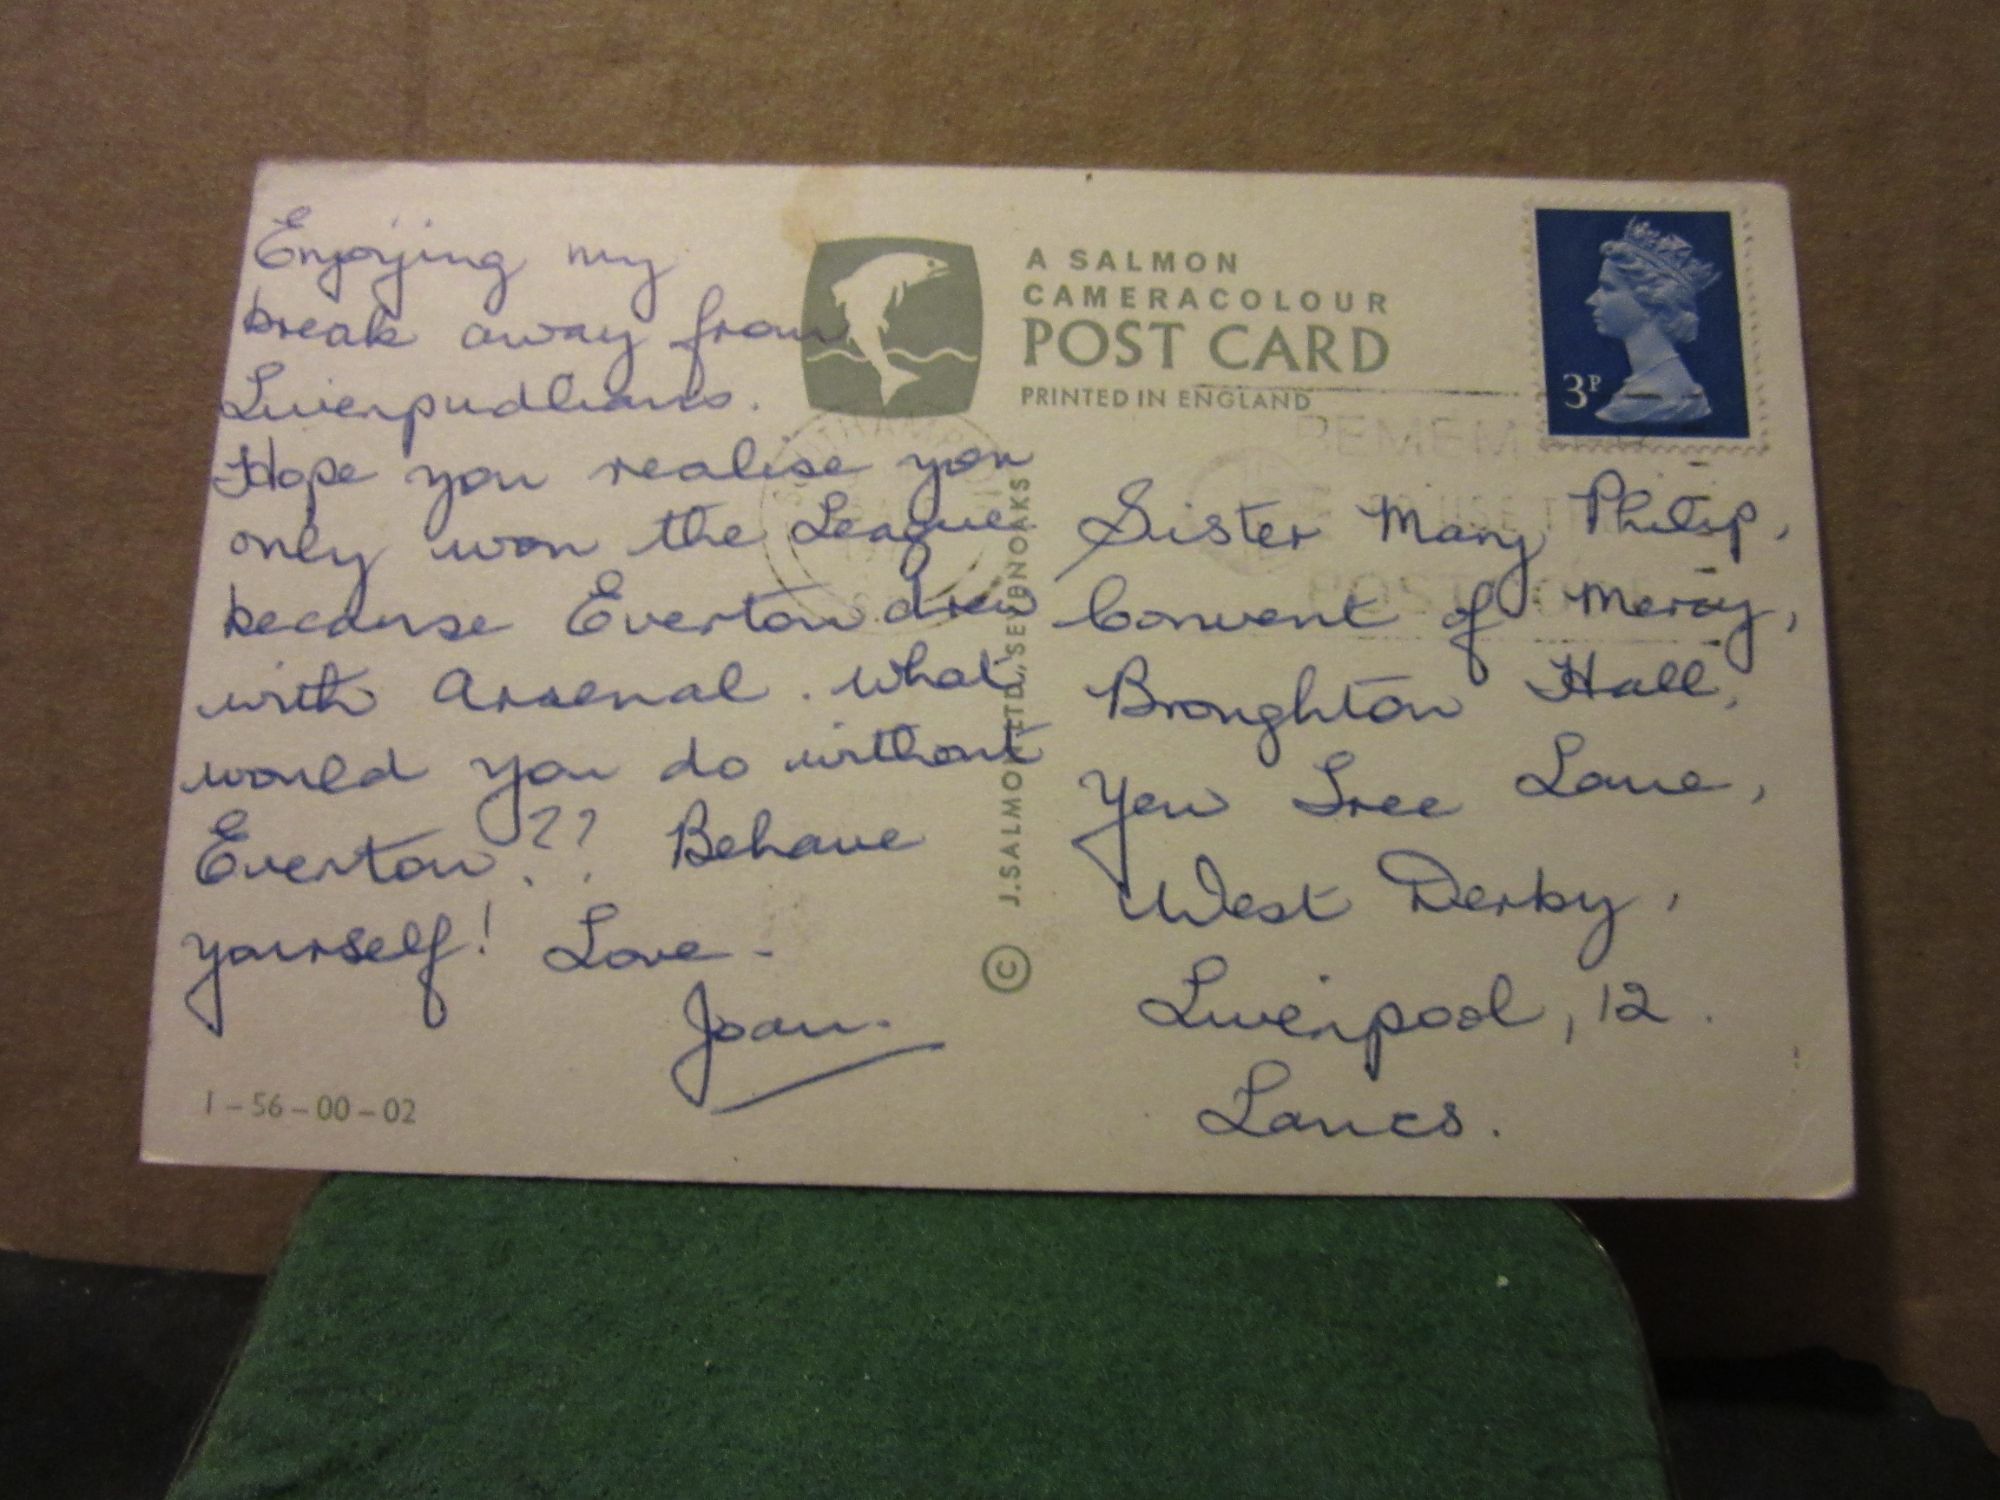 Enjoying my
break away from
Liverpudlians.
Hope you realise you
only won the League
because Everton drew
with Arsenal. What
would you do without
Everton?? Behave
yourself! Love -
Joan.
1-56-00-02
A SALMON
CAMERACOLOUR
POST CARD
PRINTED IN ENGLAND
© J. SALMON LTD., SEVENOAKS
3P
Sister Mary Philip,
Convent of Mercy,
Broughton Hall,
Yew Tree Lane,
West Derby,
Liverpool, 12.
Lancs.